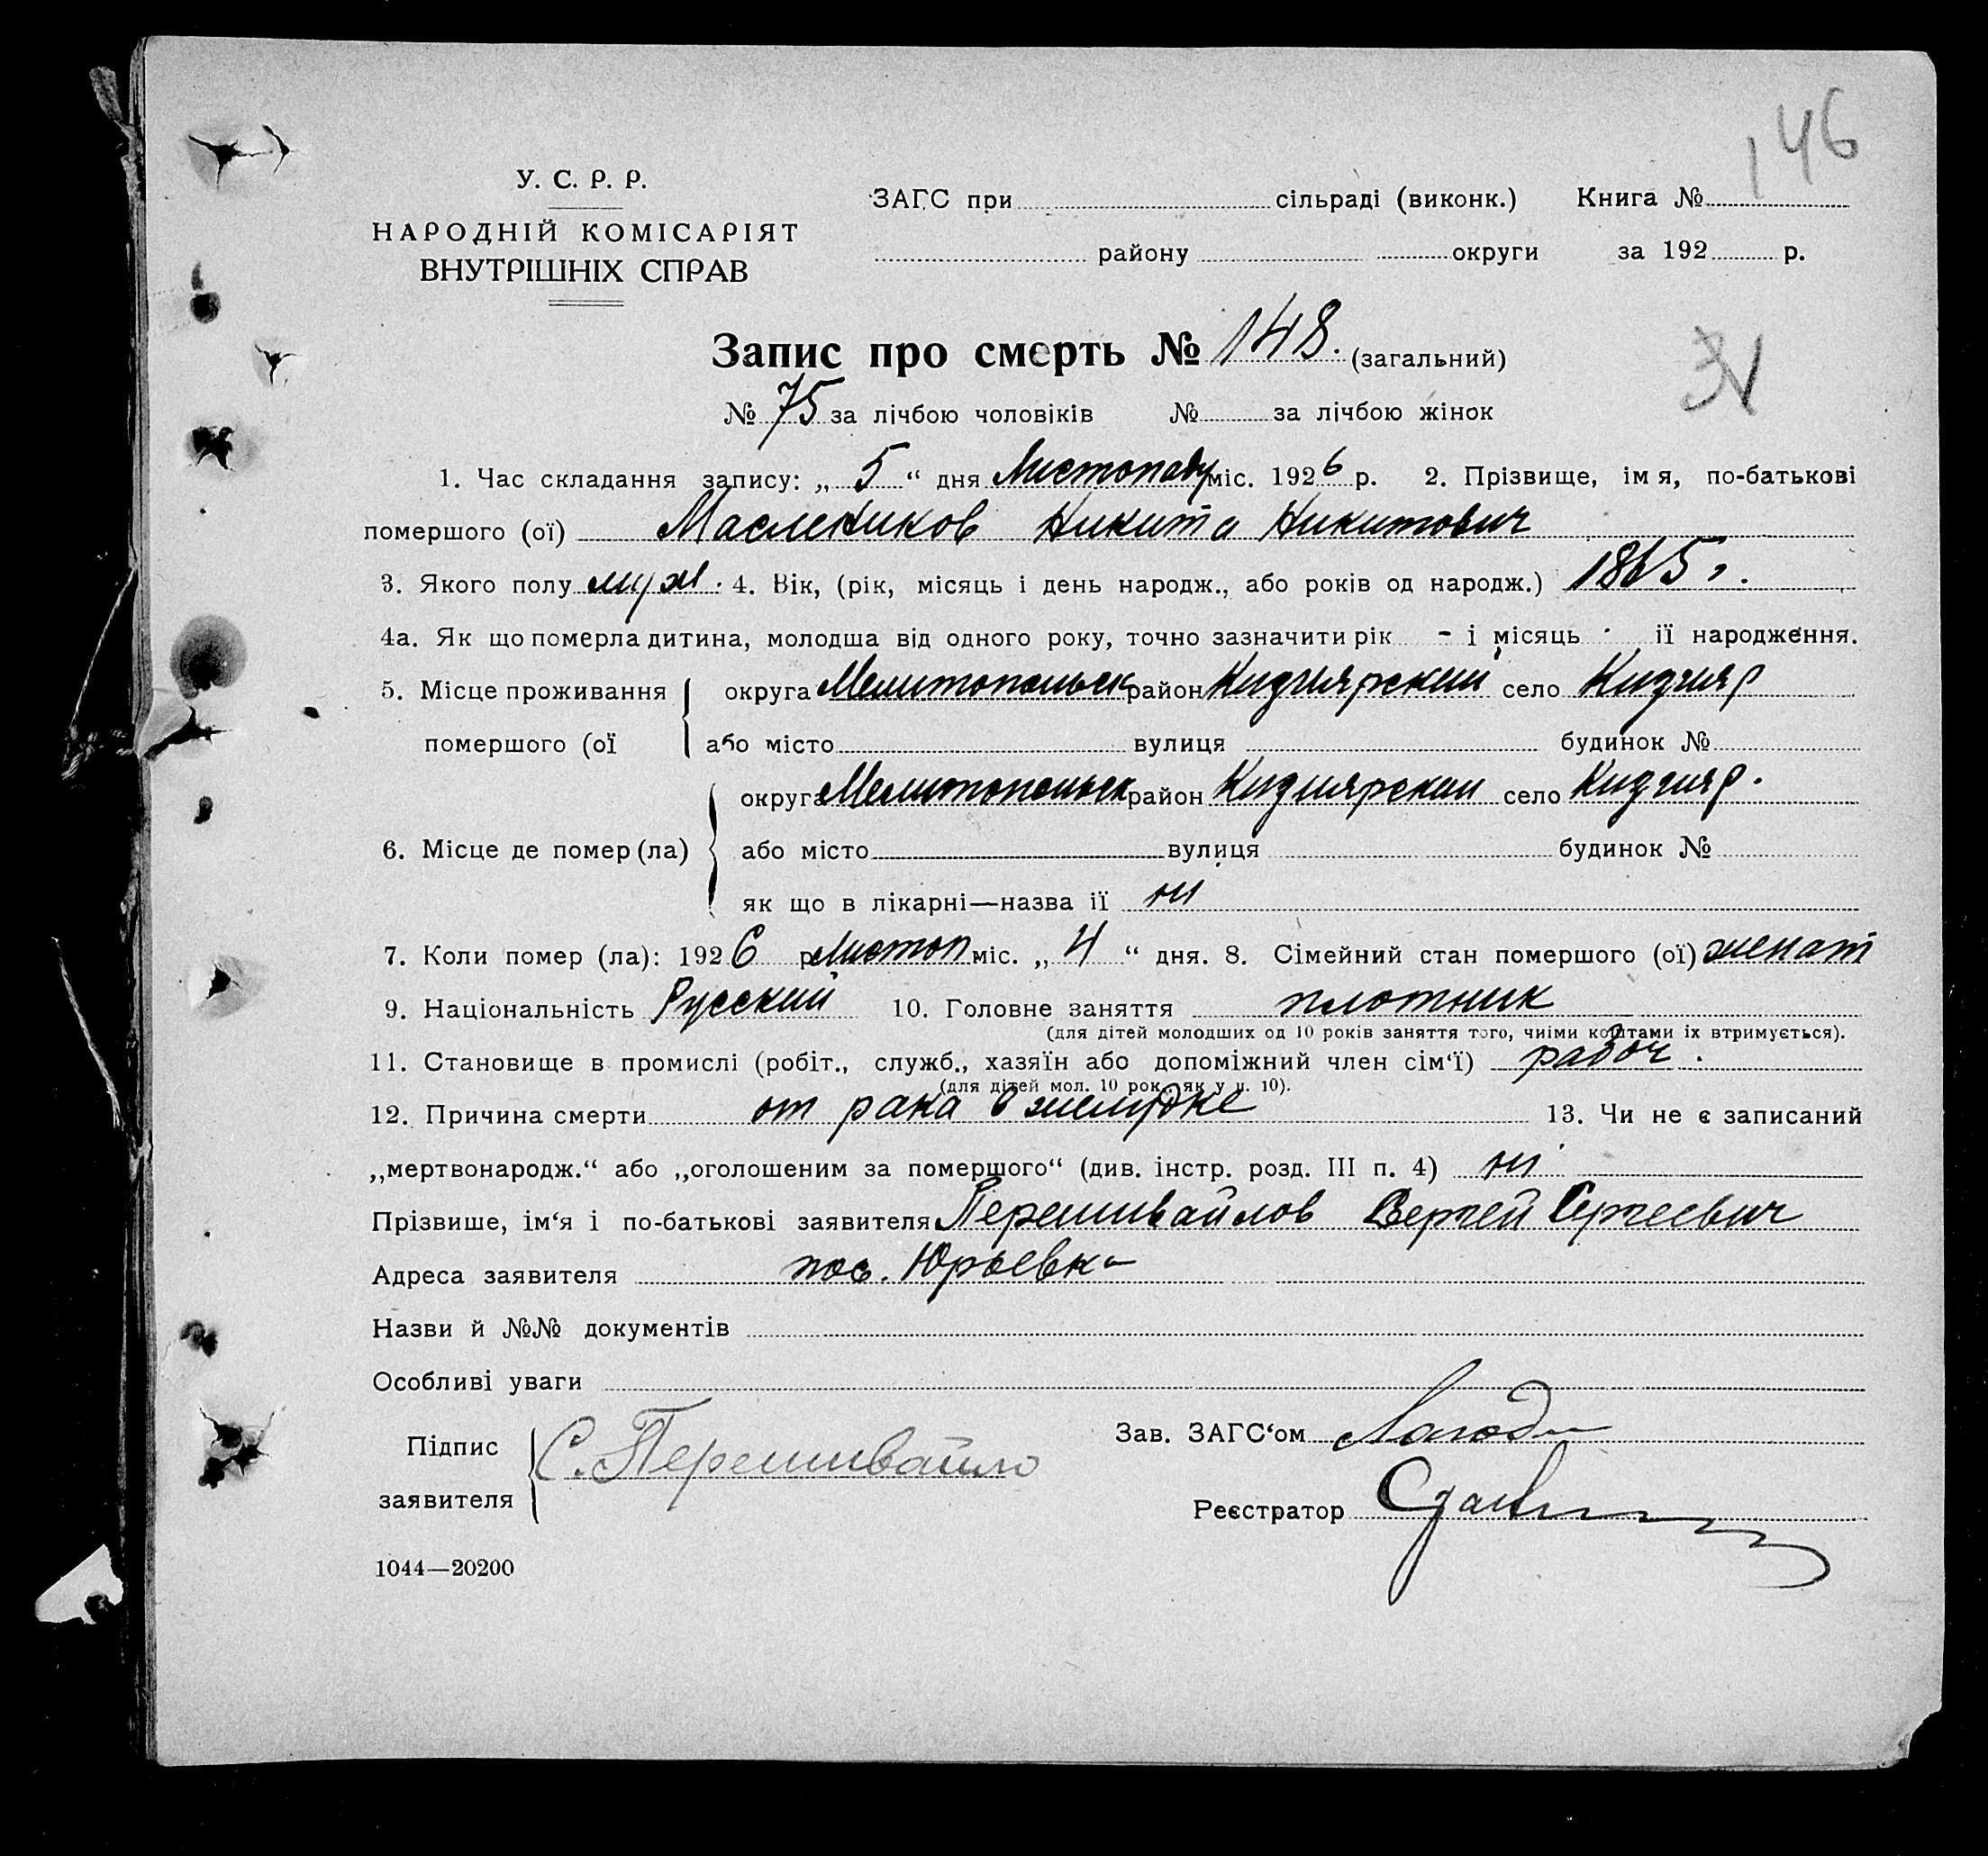 146
У. С. Р. Р.
НАРОДНІЙ КОМІСАРІЯТ
ВНУТРІШНІХ СПРАВ
ЗАГС при сільраді (виконк.) Книга №
району округи за 192 р.
Запис про смерть № 148. (загальний)
№ 75 за лічбою чоловіків № за лічбою жінок
1. Час складання запису: „ 5 “ дня Листопаду міс. 1926 р. 2. Прізвище, імя, по-батькові
помершого (ої) Маслеников Никита Никитович
3. Якого полу муж. 4. Вік, (рік, місяць і день народж., або років од народж.) 1865 г.
4а. Як що померла дитина, молодша від одного року, точно зазначити рік - і місяць - її народження.
5. Місце проживання округа Мелитопольск район Кизиярский село Кизияр
помершого (ої або місто вулиця будинок №
округа Мелитопольск район Кизиярский село Кизияр.
6. Місце де помер (ла) або місто вулиця будинок №
як що в лікарні—назва її ні
7. Коли помер (ла): 1926 р Листоп міс. „ 4 “ дня. 8. Сімейний стан помершого (ої) женат
9. Національність Русский 10. Головне заняття плотник
(для дітей молодших од 10 років заняття того, чиїми коштами їх втримується).
11. Становище в промислі (робіт., служб., хазяїн або допоміжний член сім‘ї) рабоч.
(для дітей мол. 10 рок., як у п. 10).
12. Причина смерти от рака в желудке 13. Чи не є записаний
„мертвонародж.“ або „оголошеним за помершого“ (див. інстр. розд. III п. 4) ні
Прізвише, ім‘я і по-батькові заявителя Перешивайлов Сергей Сергеевич
Адреса заявителя пос. Юрьевка
Назви й №№ документів
Особливі уваги
Підпис
заявителя С. Перешивайло
Зав. ЗАГС‘ом
Реєстратор
1044—20200